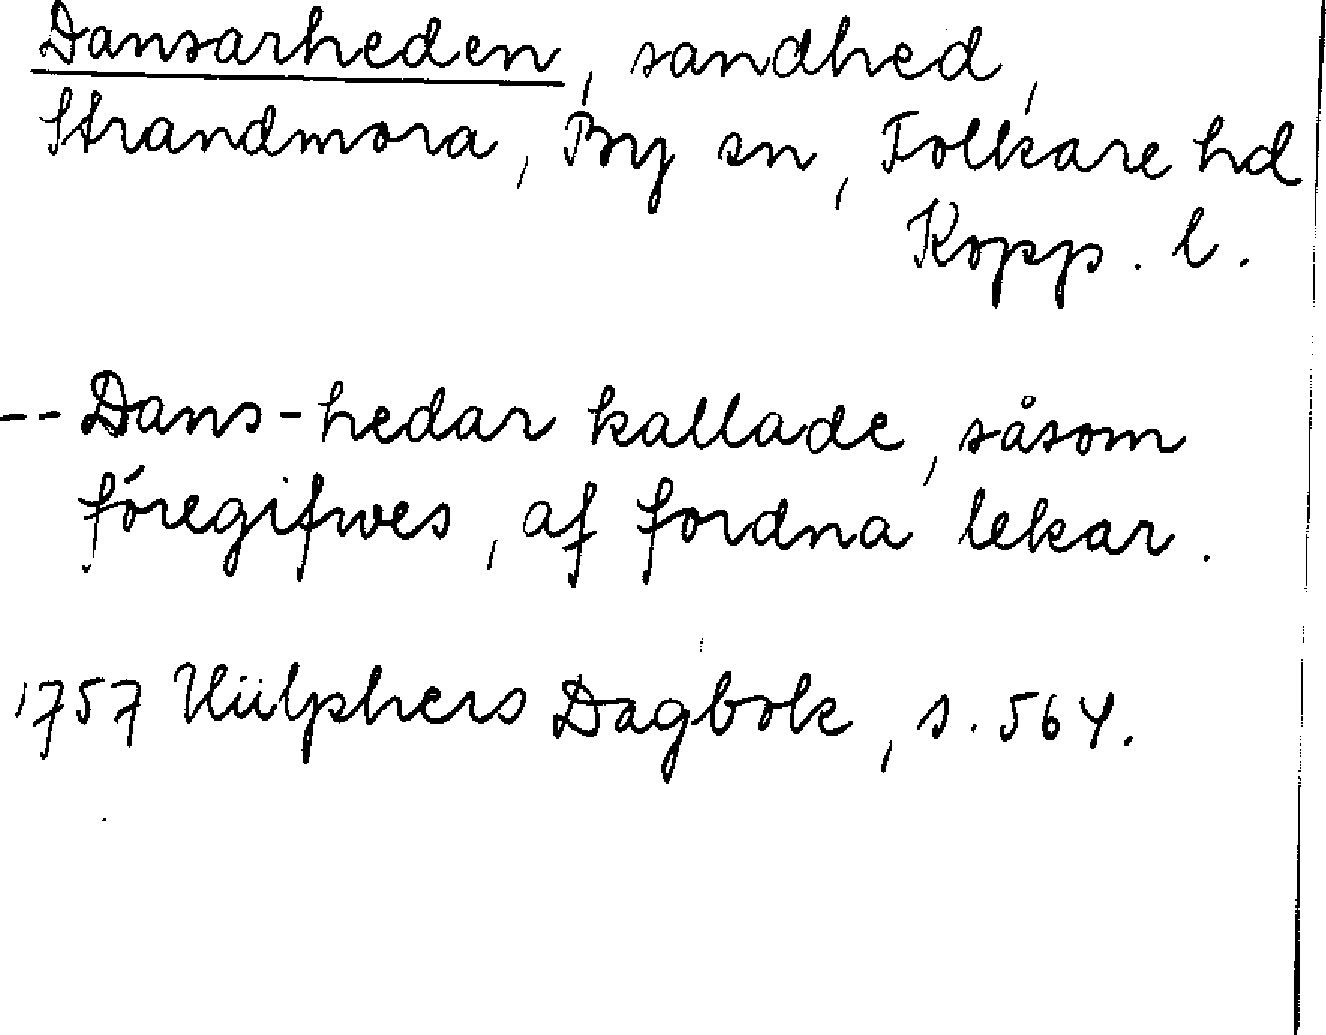 Dansarheden, sandhed,
Strandmora, By sn, Folkare hd
Kopp. l.
-- Dans-hedar kallade, såsom
föregifwes, af fordna lekar.
1757 Hülphers Dagbok, s. 564.